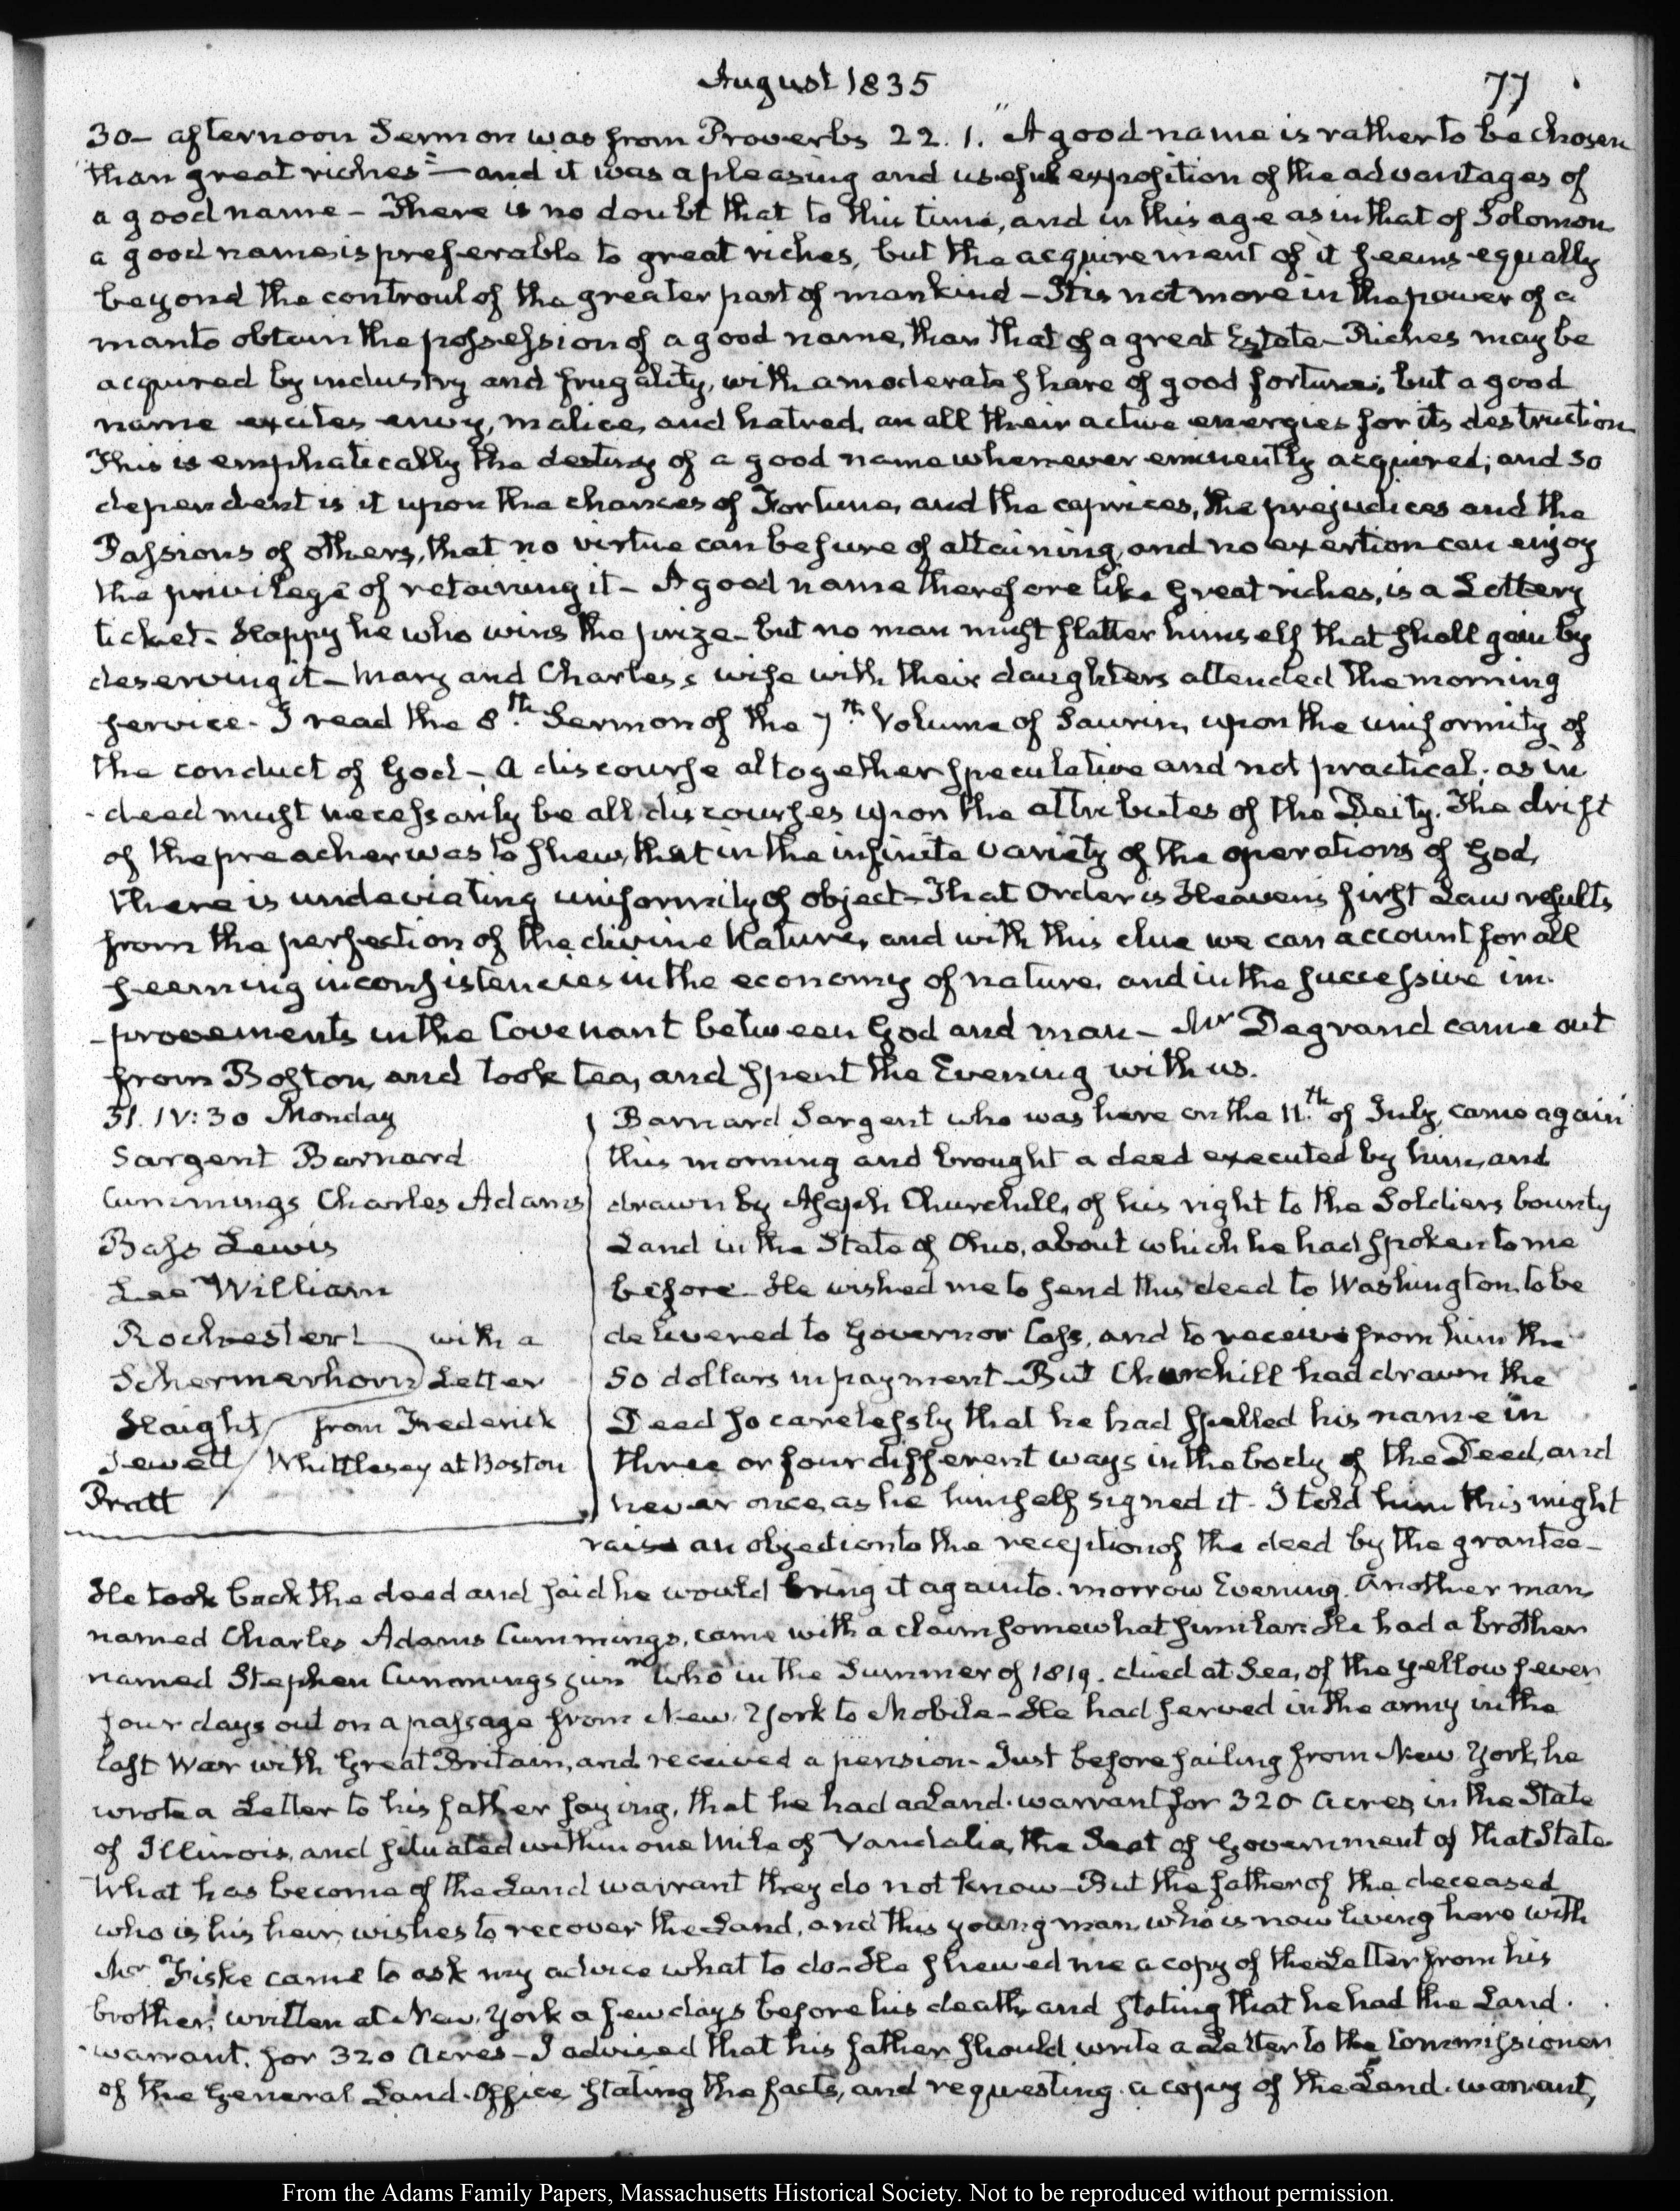 August 1835
77
30 – afternoon Sermon was from Proverbs 22. 1. "A good name is rather to be chosen
than great riches" – and it was a pleasing and useful exposition of the advantages of
a good name – There is no doubt that to this time, and in this age as in that of Solomon
a good name is preferable to great riches, but the acquirement of it seems equally
beyond the controul of the greater part of mankind – It is not more in the power of a
man to obtain the possession of a good name, than that of a great Estate – Riches may be
acquired by industry and frugality, with a moderate share of good fortune; but a good
name excites envy, malice, and hatred, an all their active energies for its destruction
This is emphatically the destiny of a good name whenever eminently acquired; and so
dependent is it upon the chances of Fortune, and the caprices, the prejudices and the
Passions of others, that no virtue can be sure of attaining, and no exertion can enjoy
the privilege of retaining it – A good name therefore like great riches, is a Lottery
ticket – Happy he who wins the prize – but no man must flatter himself that shall gain by
deserving it – Mary and Charles's wife with their daughters attended the morning
service – I read the 8th Sermon of the 7th Volume of Saurin, upon the uniformity of
the conduct of God – A discourse altogether speculative and not practical. as in
-deed must necessarily be all discourses upon the attributes of the Deity. The drift
of the preacher was to shew, that in the infinite variety of the operations of God,
there is undeviating uniformity of object – That Order is Heaven's first Law results
from the perfection of the divine Nature, and with this clue we can account for all
seeming inconsistencies in the economy of nature, and in the successive im-
-provements in the Covenant between God and man – Mr Degrand came out
from Boston, and took tea, and spent the Evening with us.
31. IV:30 Monday
Sargent Barnard
Cummings Charles Adams
Bass Lewis
Lee William
Rochester with a
Schermerhorn Letter
Haight from Frederick
Jewett Whittlesey at Boston
Pratt
Barnard Sargent who was here on the 11th of July, came again
this morning and brought a deed executed by him, and
drawn by Asaph Churchill, of his right to the Soldiers bounty
Land in the State of Ohio, about which he had spoken to me
before – He wished me to send this deed to Washington, to be
delivered to Governor Cass, and to receive from him the
50 dollars in payment – But Churchill had drawn the
Deed so carelessly that he had spelled his name in
three or four different ways in the body of the Deed, and
never once, as he himself signed it – I told him this might
raise an objection to the reception of the deed by the grantee –
He took back the deed and said he would bring it again to-morrow Evening. Another man
named Charles Adams Cummings, came with a claim somewhat similar. He had a brother
named Stephen Cummings junr who in the Summer of 1819. died at Sea, of the yellow fever
four days out on a passage from New-York to Mobile – He had served in the army in the
last War with Great Britain, and received a pension – Just before sailing from New York, he
wrote a Letter to his father saying, that he had a Land-warrant for 320 Acres in the State
of Illinois, and situated within one Mile of Vandalia, the Seat of Government of that State.
What has become of the Land warrant they do not know – But the father of the deceased
who is his heir, wishes to recover the Land, and this young man, who is now living here with
Mr Fiske came to ask my advice what to do – He shewed me a copy of the Letter from his
brother, written at New-York a few days before his death, and stating that he had the Land-
-warrant, for 320 Acres – I advised that his father should write a Letter to the Commissioner
of the General Land-Office, stating the facts, and requesting a copy of the Land-warrant,
From the Adams Family Papers, Massachusetts Historical Society. Not to be reproduced without permission.